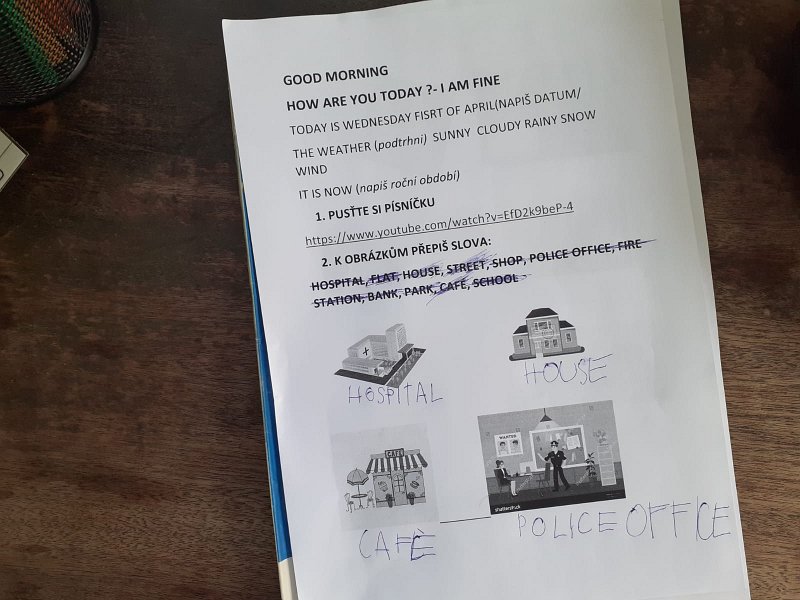 GOOD MORNING
HOW ARE YOU TODAY ?- I AM FINE
TODAY IS WEDNESDAY FISRT OF APRIL(NAPIŠ DATUM/
THE WEATHER (podtrhni) SUNNY CLOUDY RAINY SNOW
WIND
IT IS NOW (napiš roční období)
1. PUSŤTE SI PÍSNÍČKU
https://www.youtube.com/watch?v=EfD2k9beP-4
2. K OBRÁZKŮM PŘEPIŠ SLOVA:
HOSPITAL, FLAT, HOUSE, STREET, SHOP, POLICE OFFICE, FIRE
STATION, BANK, PARK, CAFÉ, SCHOOL
HOSPITAL
HOUSE
CAFE
WANTED
shutterstock
CAFÈ
POLICE OFFICE